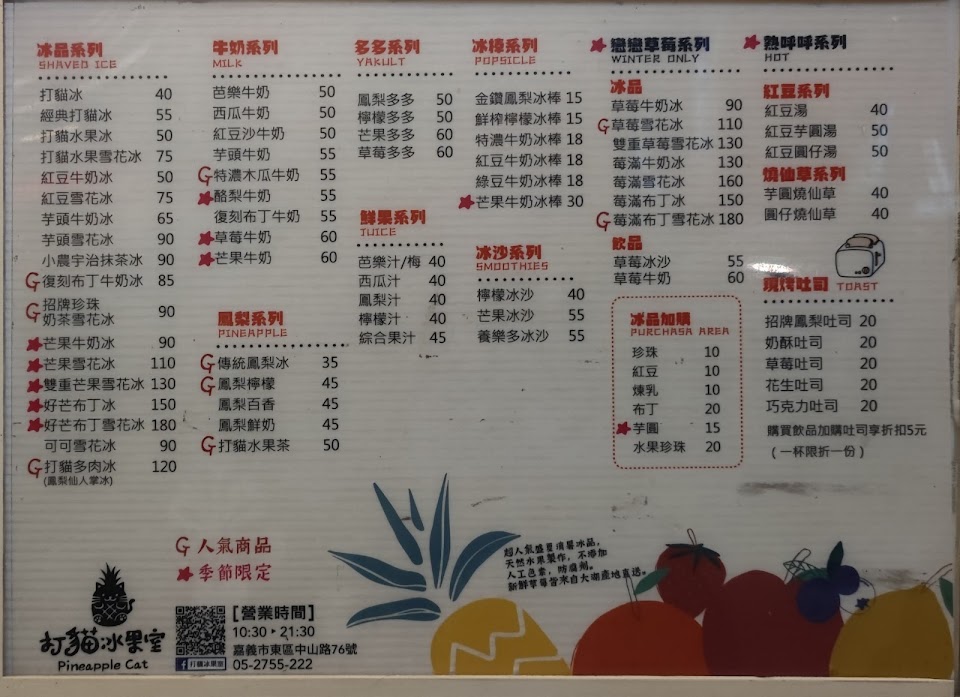 冰品系列
SHAVED ICE
打貓冰 40
經典打貓冰 55
打貓水果冰 50
打貓水果雪花冰 75
紅豆牛奶冰 50
紅豆雪花冰 75
芋頭牛奶冰 65
芋頭雪花冰 90
小農宇治抹茶冰 90
G復刻布丁牛奶冰 85
G招牌珍珠
奶茶雪花冰 90
芒果牛奶冰 90
芒果雪花冰 110
雙重芒果雪花冰 130
好芒布丁冰 150
好芒布丁雪花冰 180
可可雪花冰 90
G打貓多肉冰 120
(鳳梨仙人掌冰)
牛奶系列
MILK
芭樂牛奶 50
西瓜牛奶 50
紅豆沙牛奶 50
芋頭牛奶 55
G特濃木瓜牛奶 55
酪梨牛奶 55
復刻布丁牛奶 55
草莓牛奶 60
芒果牛奶 60
鳳梨系列
PINEAPPLE
G傳統鳳梨冰 35
G鳳梨檸檬 45
鳳梨百香 45
鳳梨鮮奶 45
G打貓水果茶 50
多多系列
YAKULT
鳳梨多多 50
檸檬多多 50
芒果多多 60
草莓多多 60
鮮果系列
TUICE
芭樂汁/梅 40
西瓜汁 40
鳳梨汁 40
檸檬汁 40
綜合果汁 45
冰棒系列
POPSICLE
金鑽鳳梨冰棒 15
鮮榨檸檬冰棒 15
特濃牛奶冰棒 18
紅豆牛奶冰棒 18
綠豆牛奶冰棒 18
芒果牛奶冰棒 30
冰沙系列
SMOOTHIES
檸檬冰沙 40
芒果冰沙 55
養樂多冰沙 55
戀戀草莓系列
WINTER ONLY
冰品
草莓牛奶冰 90
G草莓雪花冰 110
雙重草莓雪花冰 130
莓滿牛奶冰 130
莓滿雪花冰 160
莓滿布丁冰 150
G莓滿布丁雪花冰 180
飲品
草莓冰沙 55
草莓牛奶 60
冰品加購
PURCHASA AREA
珍珠 10
紅豆 10
煉乳 10
布丁 20
芋圓 15
水果珍珠 20
熱呼呼系列
HOT
紅豆系列
紅豆湯 40
紅豆芋圓湯 50
紅豆圓仔湯 50
燒仙草系列
芋圓燒仙草 40
圓仔燒仙草 40
現烤吐司 TOAST
招牌鳳梨吐司 20
奶酥吐司 20
草莓吐司 20
花生吐司 20
巧克力吐司 20
購買飲品加購吐司享折扣5元
(一杯限折一份)
G人氣商品
季節限定
超人氣盛夏消暑冰品，
天然水果製作，不添加
人工色素，防腐劑。
新鮮草莓皆來自大湖產地直送。
打貓冰果室
Pineapple Cat
打貓冰果室
[營業時間]
10:30▸21:30
嘉義市東區中山路76號
05-2755-222